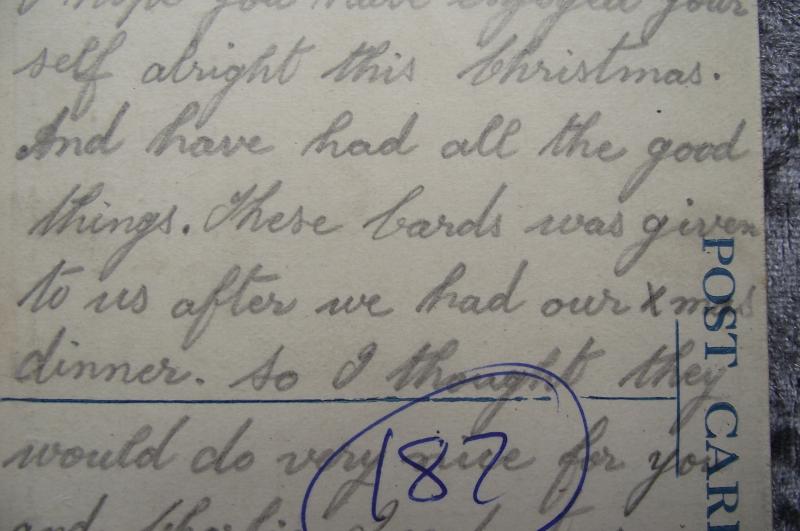 I hope you have enjoyed your
self alright this Christmas.
And have had all the good
things. These Cards was given
to us after we had our Xmas
dinner. So I thought they
would do very nice for you
and
POST CARD
187